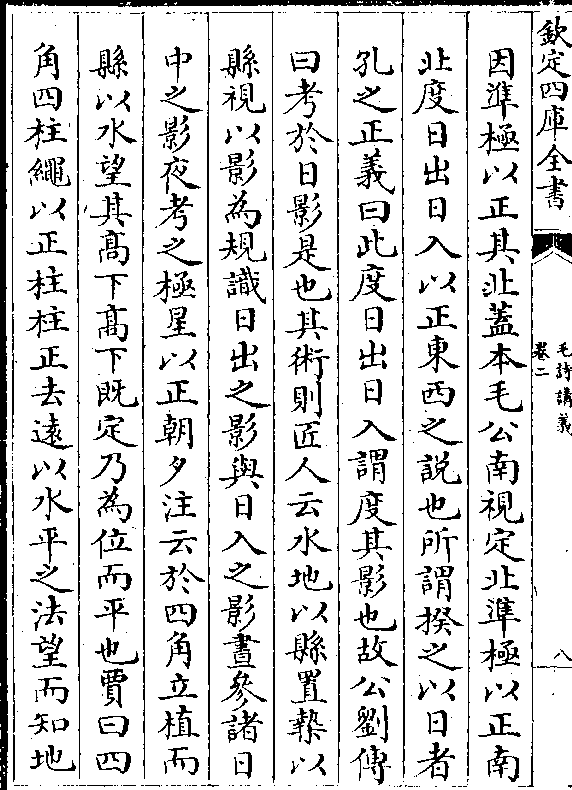 欽定四庫全書
毛詩講義
卷二
八
因準極以正其北蓋本毛公南視定北準極以正南
北度日出日入以正東西之説也所謂揆之以日者
孔之正義曰此度日出日入謂度其影也故公劉傳
曰考於日影是也其術則匠人云水地以縣置槷以
縣視以影為規識日出之影與日入之影晝參諸日
中之影夜考之極星以正朝夕注云於四角立植而
縣以水望其髙下髙下既定乃為位而平也賈曰四
角四柱繩以正柱柱正去遠以水平之法望而知地